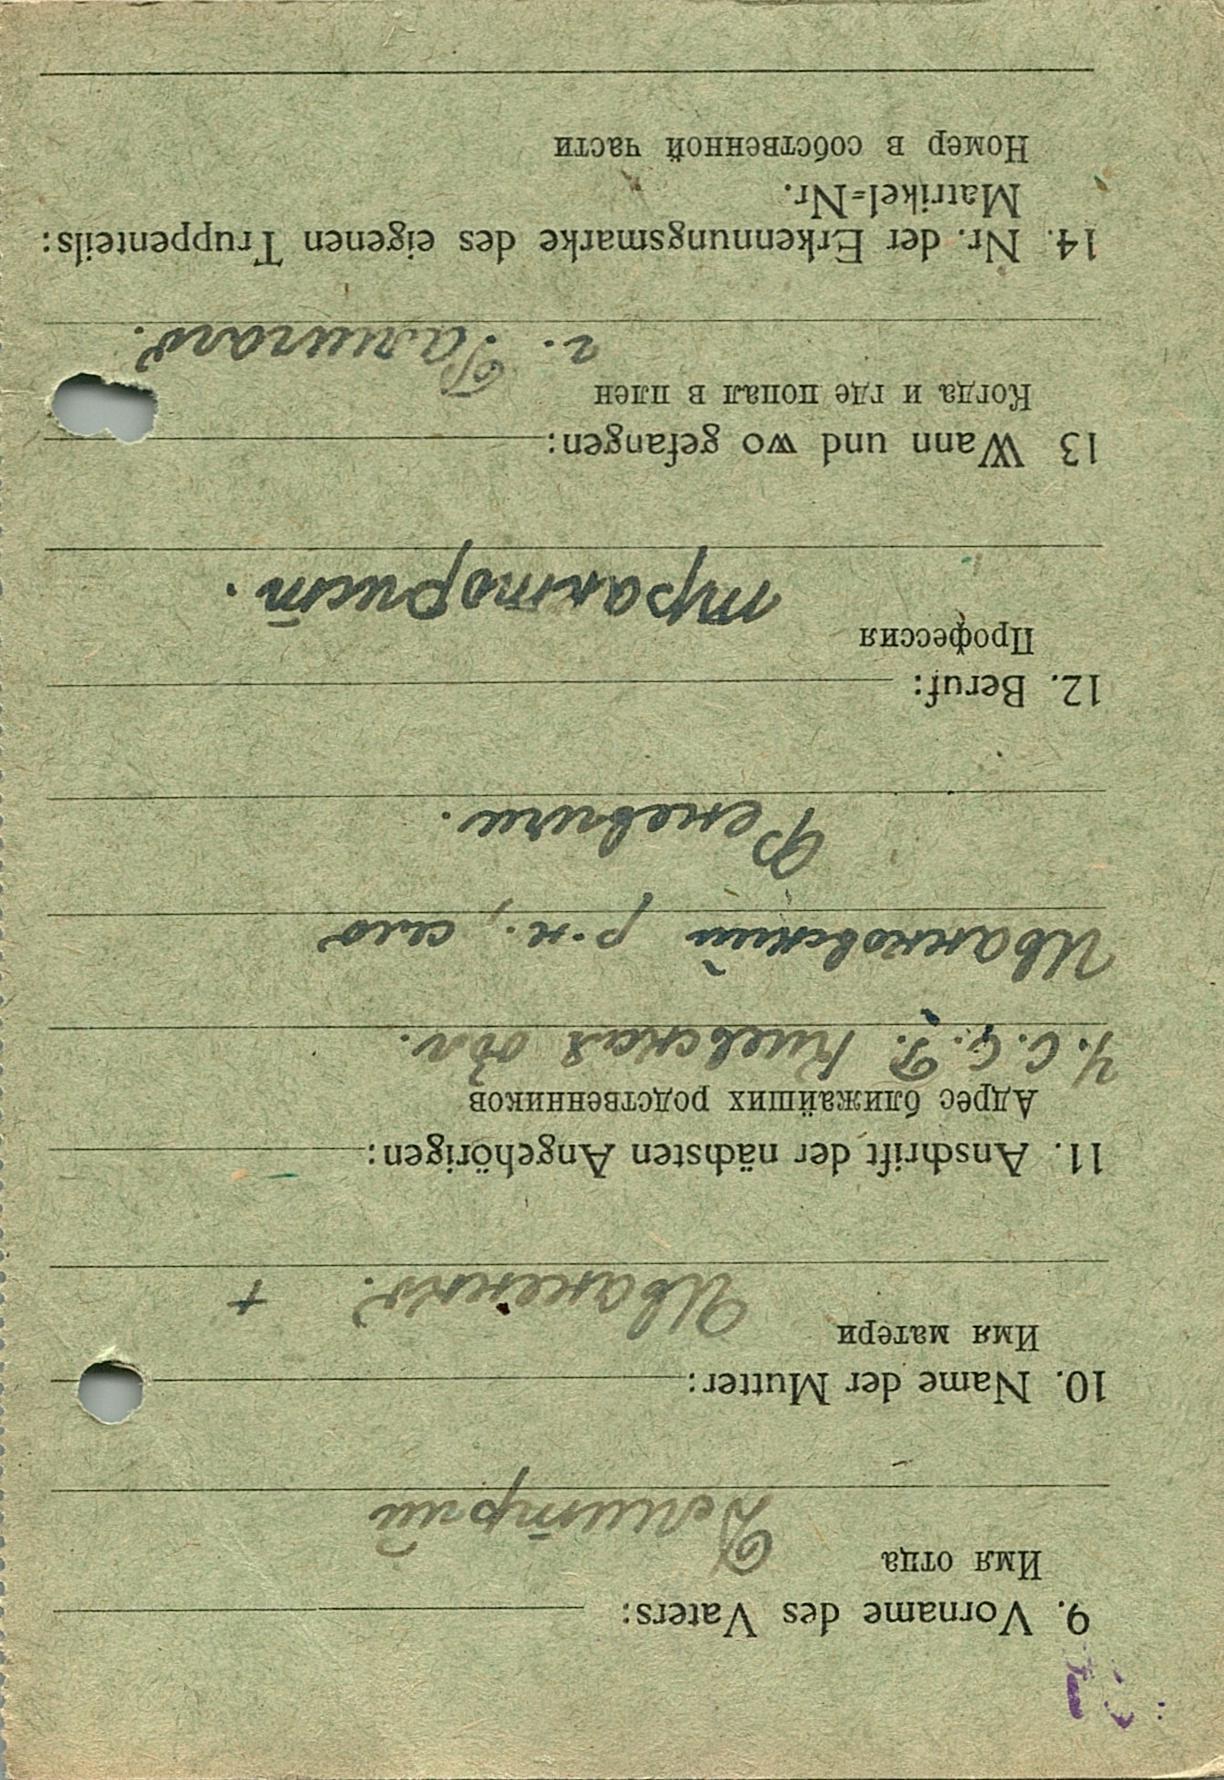 9. Vorname des Vaters:
Имя отца
Демитрий
10. Name der Mutter:
Имя матери
Иваненко. +
11. Anschrift der nächsten Angehörigen:
Адрес ближайших родственников
У.С.С.Р. Киевская обл.
Иванковский р-н., село
Феневичи.
12. Beruf:
Профессия
тракторист.
13 Wann und wo gefangen:
Когда и где попал в плен
г.
14. Nr. der Erkennungsmarke des eigenen Truppenteils:
Matrikel=Nr.
Номер в собственной части